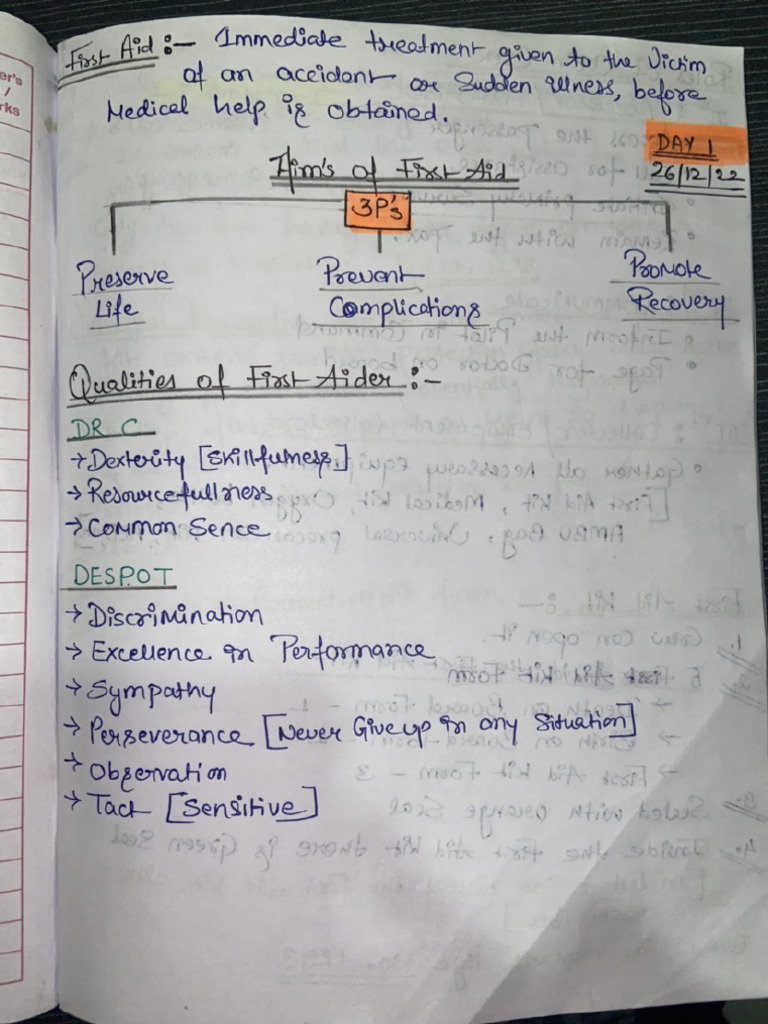 First Aid :- Immediate treatment given to the Victim
of an accident or Sudden illness, before
Medical help is obtained.
DAY 1
26/12/22
Aim's of First Aid
3Ps
Preserve Life
Prevent Complications
Promote Recovery
Qualities of First Aider :-
DR C
→ Dexterity [Skillfulness]
→ Resourcefullness
→ Common Sence
DESPOT
→ Discrimination
→ Excellence in Performance
→ Sympathy
→ Perseverance [Never Give up in any Situation]
→ Observation
→ Tact [Sensitive]